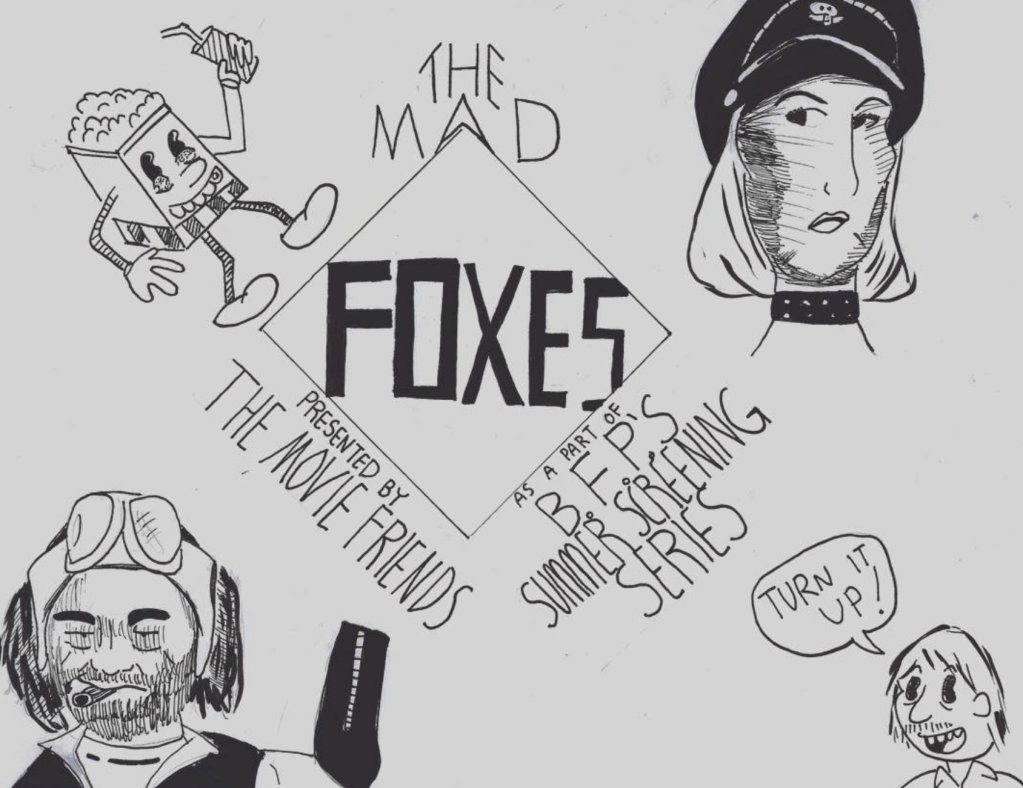 THE
MAD
FOXES
PRESENTED BY
THE MOVIE FRIENDS
AS A PART OF
B.F.P.'S
SUMMER SCREENING
SERIES
TURN IT
UP!